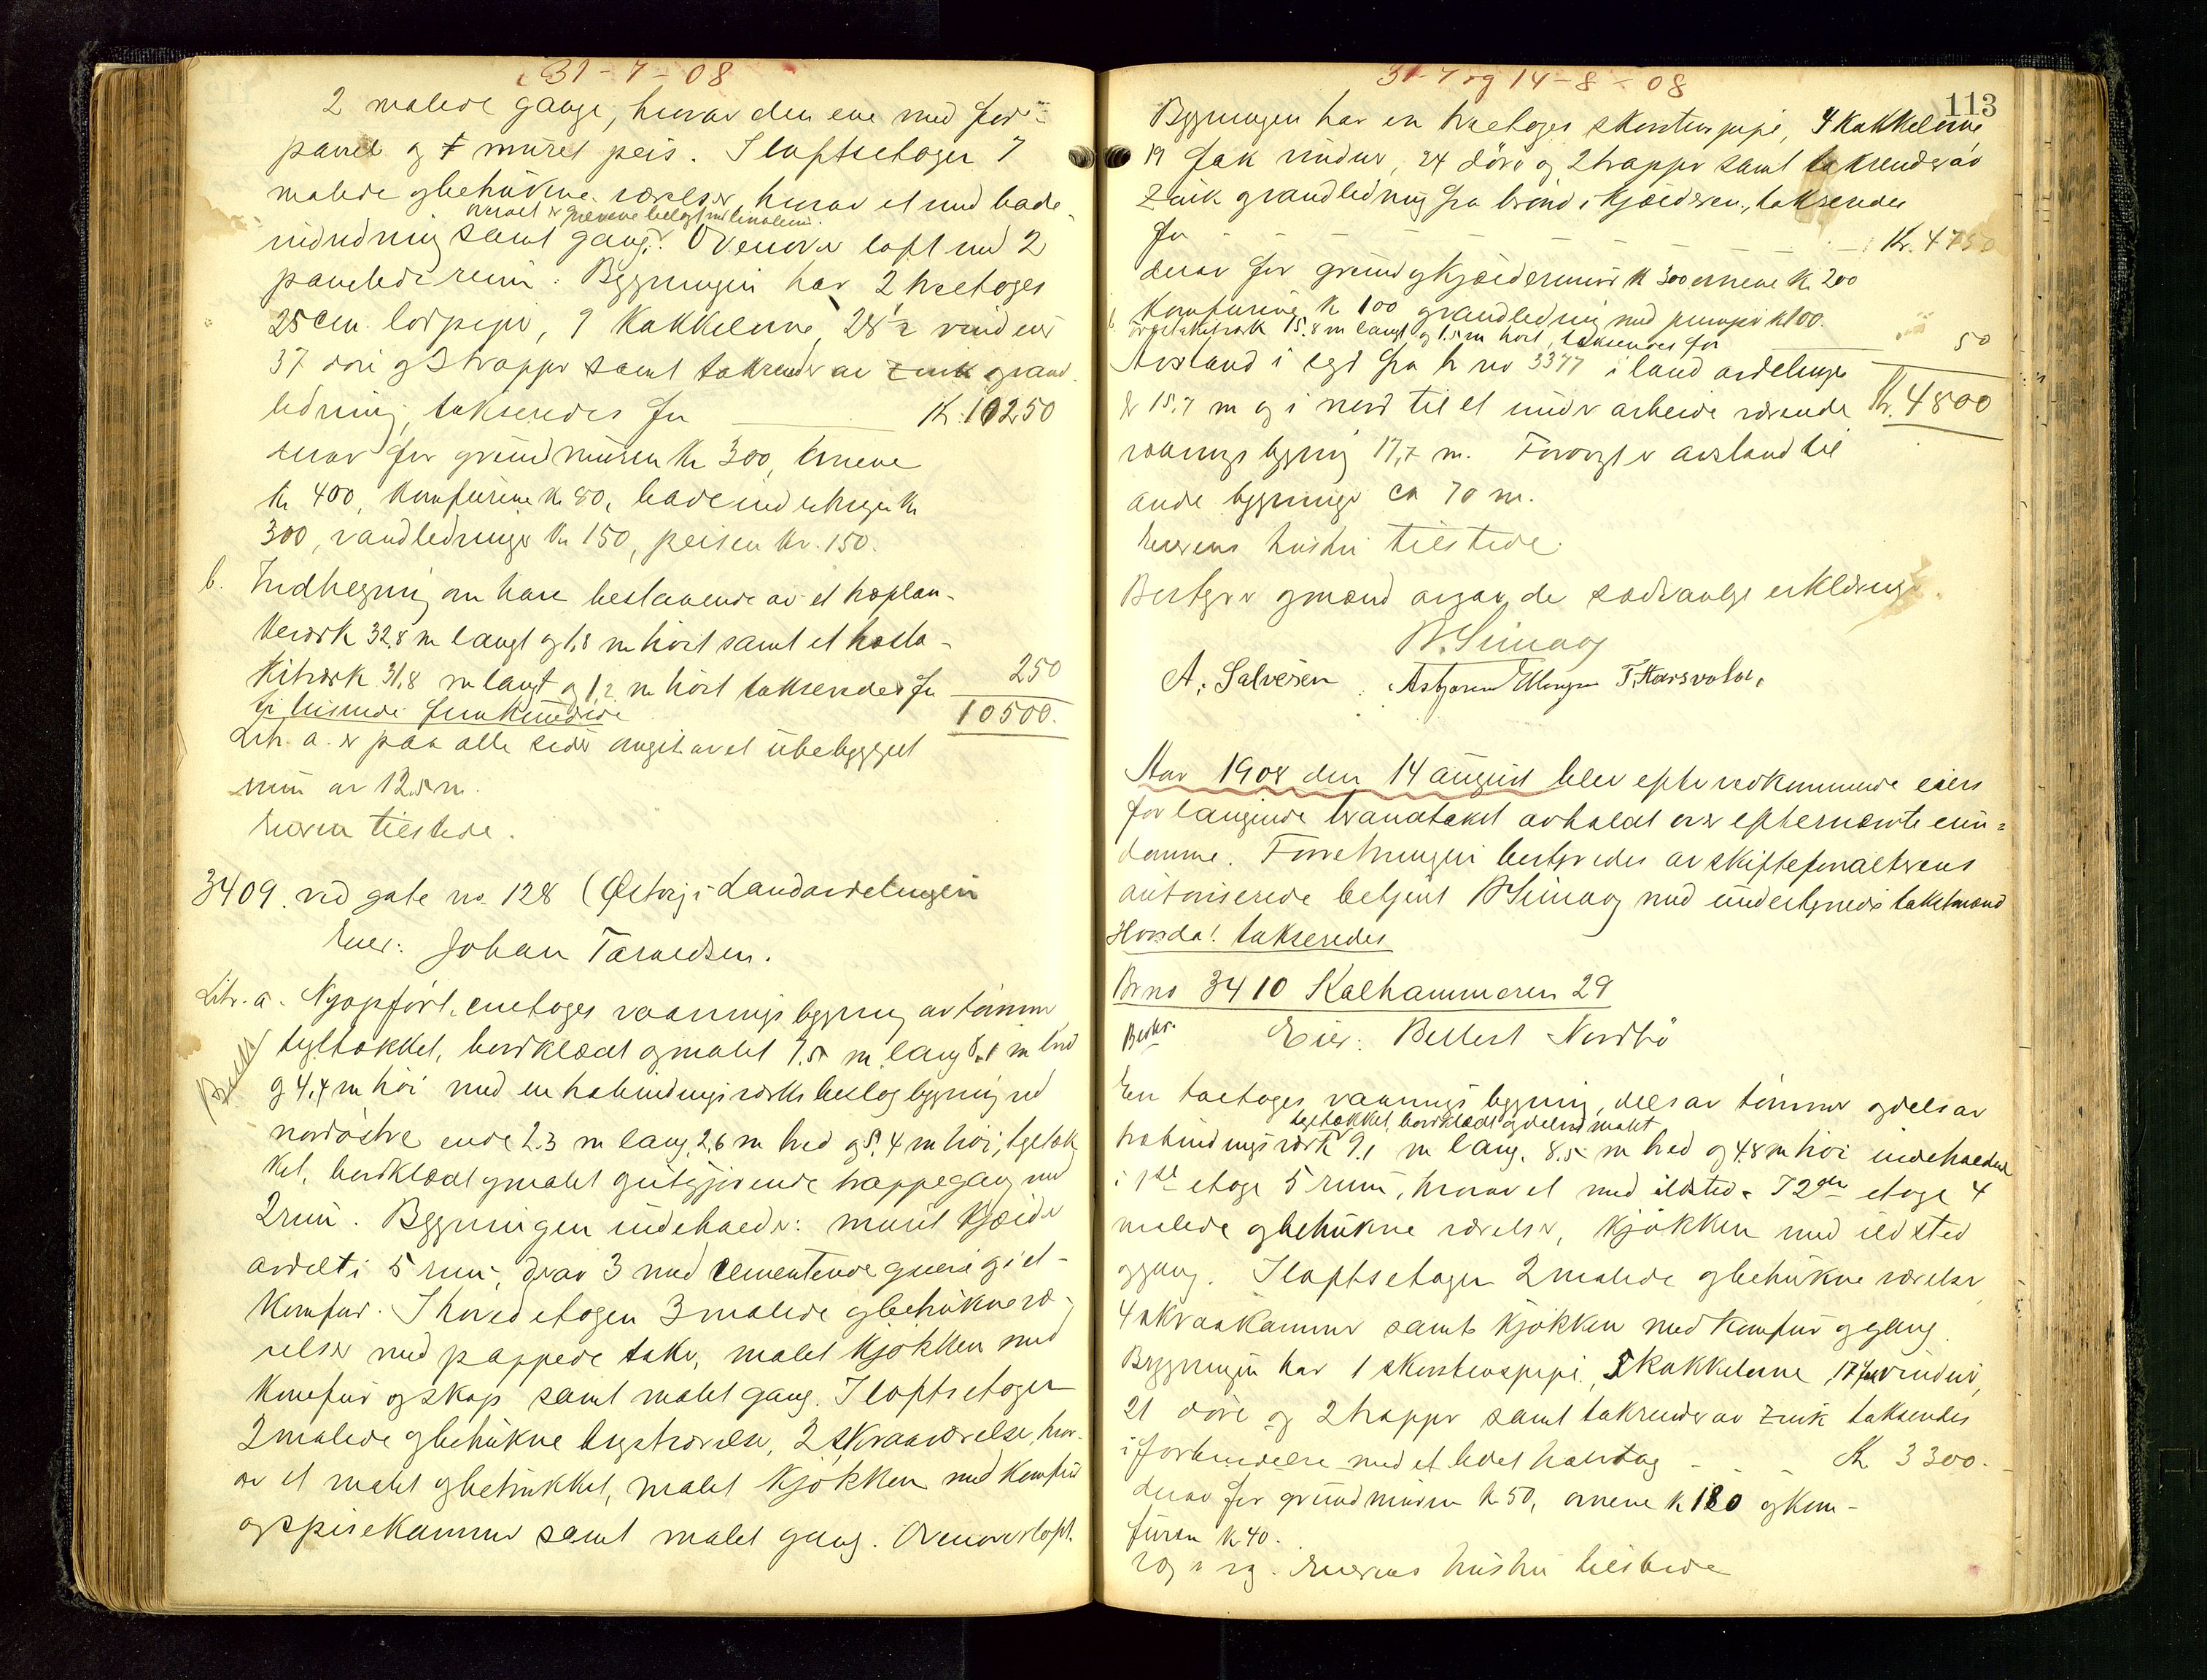 31-7-08
2 malede gange, hvorav den ene med for-
panel og 1 muret peis. I loftsetagen 7
malede og betrukne værelser, hvorav et med bade
overalt er gulvene belagt med linoleum.
indredning samt gang. Ovenover loft med 2
panelede rum. Bygningen har 2 træetages
25 cm. lodpiper, 9 kakkelovne, 28½ vinduer
37 døre og 3 trapper samt takrender av zink og vand
ledning, takseredes for Kr. 10250
derav for grundmuren kr 300, ovnene
kr 400, komfurene kr 80, badeindretningen kr
300, vandledninger kr 150, peisen kr. 150.
b. Indhegning om have bestaaende av et træplan-
keverk 32,8 m langt og 1,8 m høit samt et træsta-
kitverk 31,8 m langt og 1,2 m høit takseredes for 250
10500.
Litr. a. er paa alle sider omgit av et ubebygget
rum av 12,5 m.
Eieren tilstede.
3409. ved gate no. 128 (Østvej i Landavdelingen
Eier: Johan Taraldsen.
Litr. a. Nyopført, enetages vaaningsbygning av tømmer
tegltækket, bordklædt og malet 9.5 m lang 8.1 m bred
og 4,4 m høi med en trebindingsverks beslagbygning ved
nordøstre ende 2.3 m lang, 2,6 m bred og 5,4 m høi, tegltæk
ket, bordklædt og malet og utgjørende trappegang med
2 rum. Bygningen indeholder: muret kjelder
avdelt i 5 rum, derav 3 med cementerede gulve og i et
komfur. I hovedetagen 3 malede og betrukne væ-
relser med pappede take, malet kjøkken med
komfur og skap samt malet gang. I loftsetagen
2 malede og betrukne kvistværelser, 2 skraaværelser, hvor-
av et malet og betrukket, malet kjøkken med komfur
og spisekammer samt malet gang. Ovenover loft.
31-7 og 14-8-08
113
Bygningen har en træetages skorstenspipe, 4 kakkelovne
19 fak vinduer, 24 døre og 2 trapper samt takrender av
zink og vandledning fra brønd i kjælderen, takseredes
for Kr. 4750
derav for grund og kjældermur kr 300 ovnene kr 200
komfurene kr 100 og vandledning med pumper kr 100.
b. 15.8 m langt og 1.5 m høit, takseredes for 50
Avstand i syd fra br no 3377 i landavdelingen
er 15.7 m og i nord til et under arbeide værende Kr. 4800
vaaningsbygning 17,7 m. Forøvrigt er avstand til
andre bygninger ca 70 m.
Eierens hustru tilstede.
Bestyrer og mænd avgav de sædvanlige erklæringer.
A. Salvesen
Aar 1908 den 14 august blev efter vedkommende eiers
forlangende brandtakst avholdt over efternævnte eien-
domme. Forretningen bestyredes av skifteforvalterens
autoriserede betjent med undertegnede takstmænd
takseredes
Br no 3410 Kalhammeren 29
Eier: Bellest Nordbø
En toetages vaaningsbygning, dels av tømmer og dels av
tegltækket, bordklædt og delvis malt
træbindingsverk 9,1 m lang, 8.5 m bred og 4.8 m høi indeholder
i 1ste etage 5 rum, hvorav et med ildsted. I 2den etage 4
malede og betrukne værelser, kjøkken med ildsted
og gang. I loftsetagen 2 malede og betrukne værelser,
4 skraakammer samt kjøkken med komfur og gang.
Bygningen har 1 skorstenspipe, 5 kakkelovne, 17 fak vinduer,
21 døre og 2 trapper samt takrender av zink takseredes
i forbindelse med et lidet halvtag Kr 3300.
derav for grundmuren kr 50, ovnene kr 180 og kom-
furen kr 40.
Eierens hustru tilstede